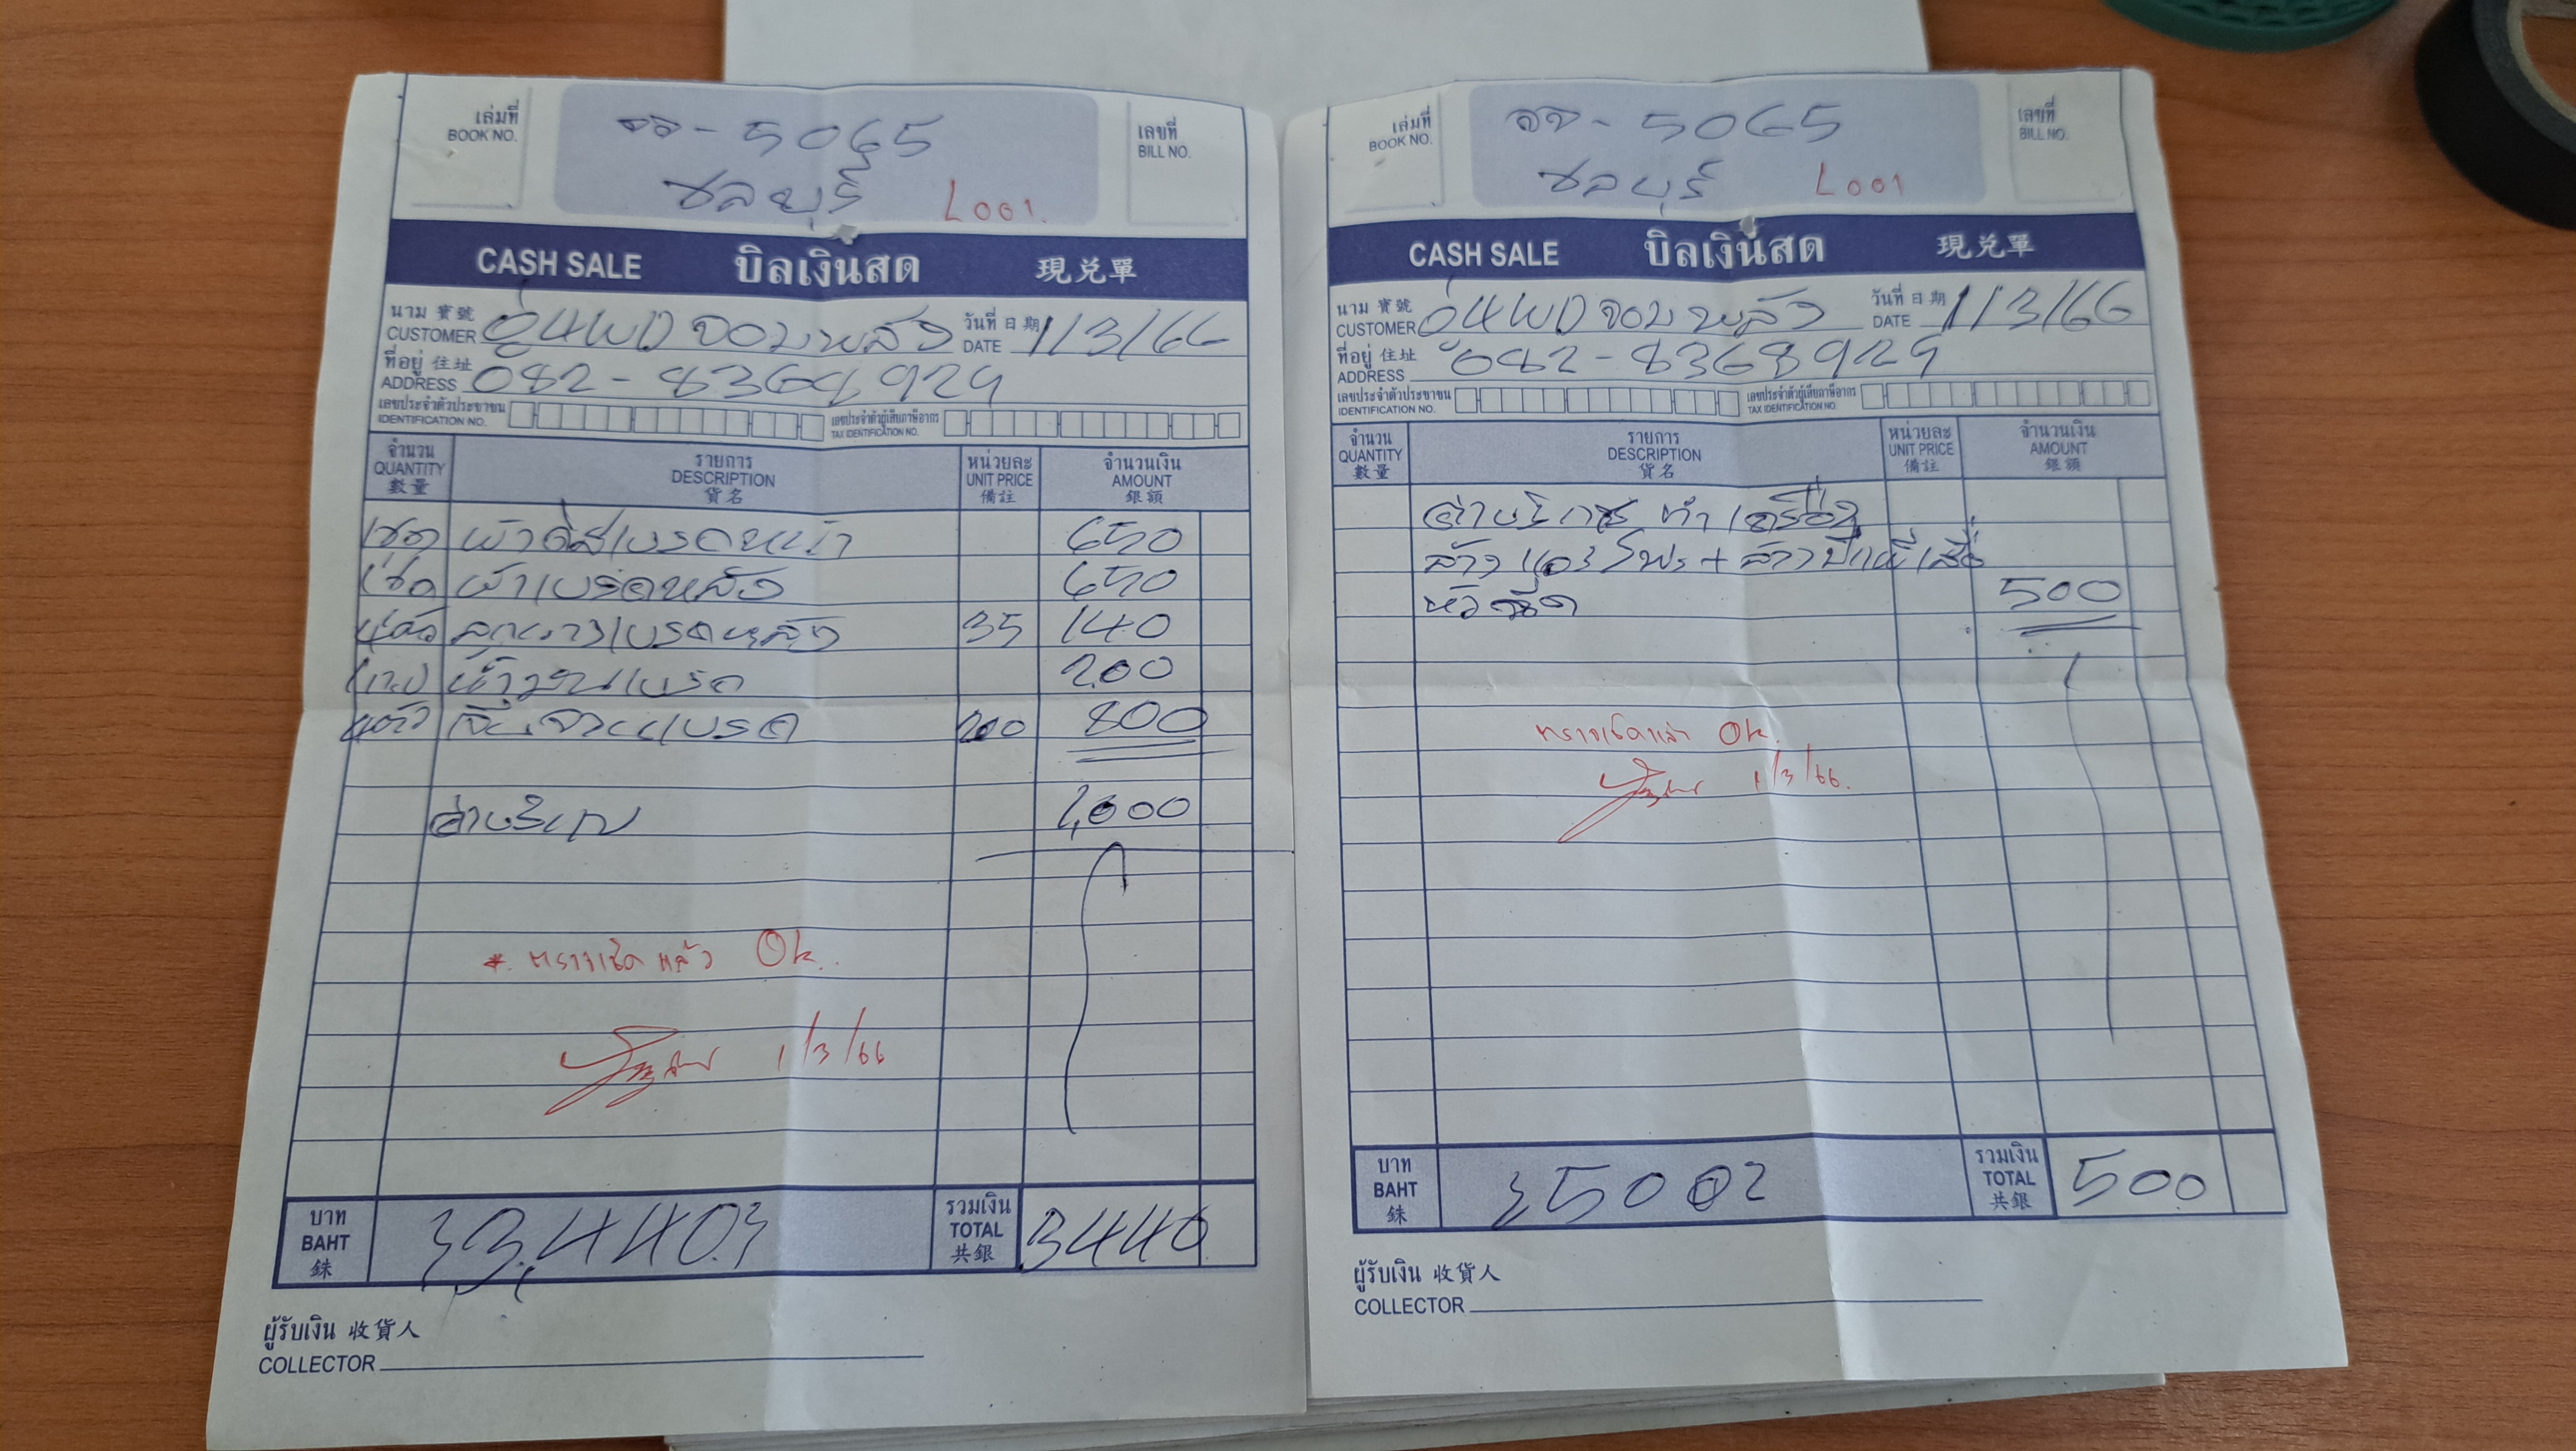 เล่มที่
BOOK NO.
5065
ชลบุรี L001.
เลขที่
BILL NO.
CASH SALE บิลเงินสด 現兑單
นาม 寶號
CUSTOMER อู่4WD จอมพลัง
วันที่ 日期
DATE 1/3/66
ที่อยู่ 住址
ADDRESS 082-8368929
เลขประจำตัวประชาชน
IDENTIFICATION NO.
เลขประจำตัวผู้เสียภาษีอากร
TAX IDENTIFICATION NO.
จำนวน QUANTITY 數量
รายการ DESCRIPTION 貨名
หน่วยละ UNIT PRICE 備註
จำนวนเงิน AMOUNT 銀額
1ชุด ผ้าดิสเบรคหน้า 650
1ชุด ผ้าเบรคหลัง 650
4ตัว ลูกยางเบรคหลัง 35 140
น้ำมันเบรค 200
4ตัว เจียรจานเบรค 200 800
ค่าบริการ 1,000
* ตรวจเช็คแล้ว Ok.
1/3/66
บาท BAHT 銖 3,440
รวมเงิน TOTAL 共銀 3440
ผู้รับเงิน 收貨人
COLLECTOR
เล่มที่
BOOK NO.
5065
ชลบุรี L001
เลขที่
BILL NO.
CASH SALE บิลเงินสด 現兑單
นาม 寶號
CUSTOMER อู่4WD จอมพลัง
วันที่ 日期
DATE 1/3/66
ที่อยู่ 住址
ADDRESS 082-8368929
เลขประจำตัวประชาชน
IDENTIFICATION NO.
เลขประจำตัวผู้เสียภาษีอากร
TAX IDENTIFICATION NO.
จำนวน QUANTITY 數量
รายการ DESCRIPTION 貨名
หน่วยละ UNIT PRICE 備註
จำนวนเงิน AMOUNT 銀額
ค่าบริการ ทำเครื่อง
ล้างแอร์โฟร + ล้างปีกผีเสื้อ
หัวฉีด 500
ตรวจเช็คแล้ว Ok.
1/3/66.
บาท BAHT 銖 500
รวมเงิน TOTAL 共銀 500
ผู้รับเงิน 收貨人
COLLECTOR